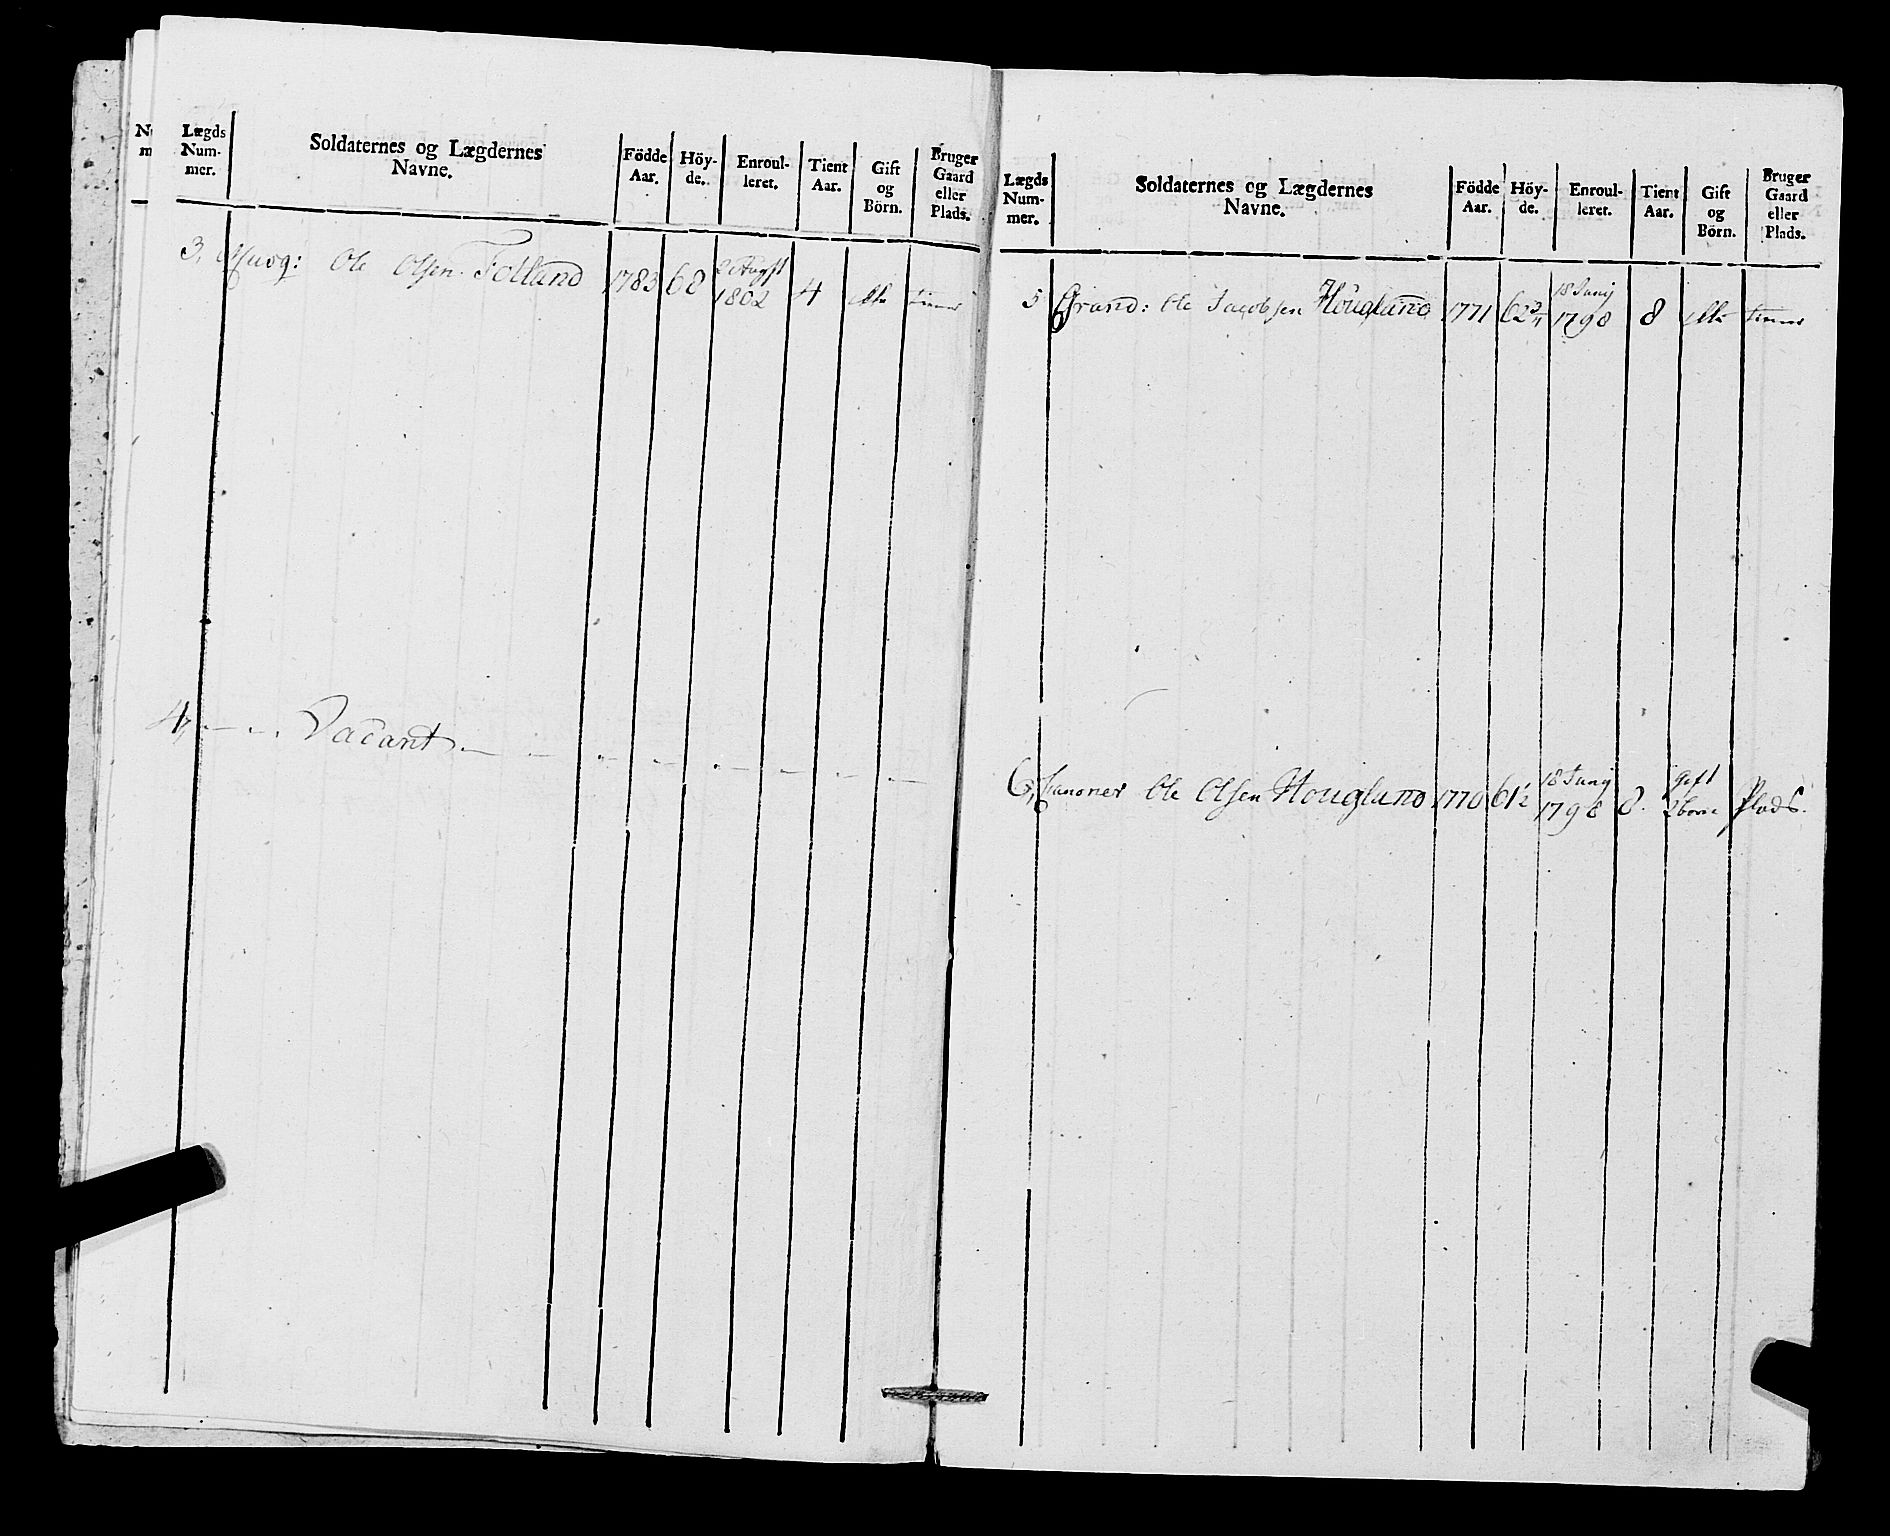 Nu
m
Lægds Num- mer.
Soldaternes og Lægdernes Navne.
Födde Aar.
Höy- de.
Enroul- leret.
Tient Aar.
Gift og Börn.
Bruger Gaard eller Plads.
3, Musq: Ole Olsen Folland 1783 68 2 Augst 1802 4 tiener
4, Vacant
Lægds Num- mer.
Soldaternes og Lægdernes Navne.
Födde Aar.
Höy- de.
Enroul- leret.
Tient Aar.
Gift og Börn.
Bruger Gaard eller Plads.
5 Grand: Ole Jacobsen Hougland 1771 62 3/4 18 Junij 1798 8 tiener
6, Canoner Ole Olsen Hougland 1770 61 1/2 18 Junij 1798 8. gift 2 börn Plads.